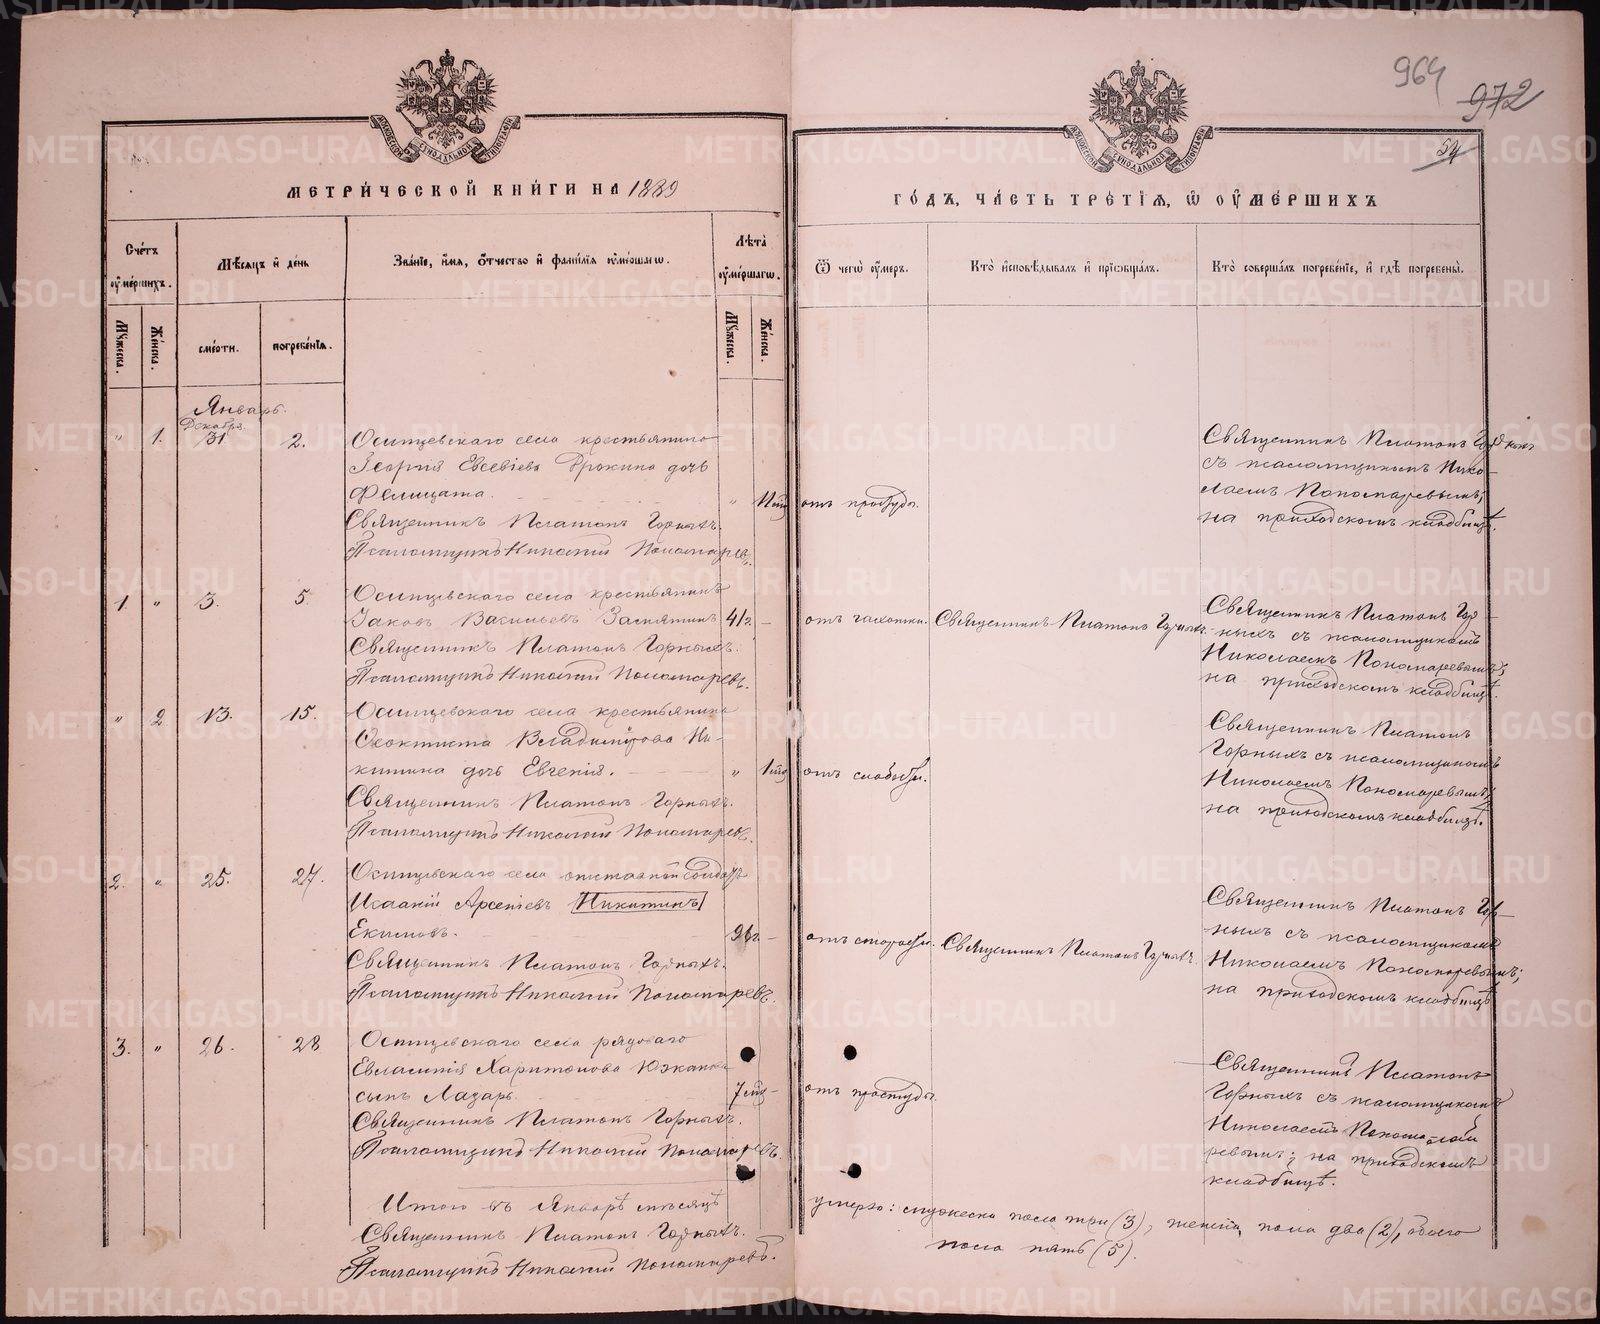 964
972
54
МОСКОВСКОЙ СѴНОДАЛЬНОЙ ТИПОГРАФІИ
МОСКОВСКОЙ СѴНОДАЛЬНОЙ ТИПОГРАФІИ
МЕТРИ́ЧЕСКОЙ КНИ́ГИ НА 1889
ГО́ДЪ, ЧА́СТЬ ТРЕ́ТІѦ, Ѡ҆ ОУ҆МЕ́РШИХЪ
Сче́тъ оу҆ме́ршихъ.
Мѣ́сѧцъ и҆ де́нь
Зва́нїе, и҆́мѧ, ѻ҆́тчество и҆ фами́лїѧ оу҆ме́ршагѡ.
Лѣ́та оу҆ме́ршагѡ.
Ѿ чегѡ̀ оу҆́меръ.
Кто̀ и҆сповѣ́дывалъ и҆ прїѡбща́лъ.
Кто̀ соверша́лъ погребе́нїе, и҆ гдѣ̀ погребены̀.
Мꙋ́жеска.
Же́нска.
сме́рти.
погребе́нїѧ.
Мꙋ́жеска.
Же́нска.
Январь.
Декабря
" 1. 31 2. Осинцевскаго села крестьянина
Георгія Евсевіева Дрокина дочь
Фелицата. "
Священникъ Платонъ Горныхъ.
Псаломщикъ Николай Пономаревъ.
отъ простуды.
Священникъ Платонъ Горныхъ
съ псаломщикомъ Нико-
лаемъ Пономаревымъ;
на приходскомъ кладбищѣ.
1. " 3. 5. Осинцевскаго села крестьянинъ
Іаковъ Васильевъ Замятинъ 41 г. -
Священникъ Платонъ Горныхъ.
Псаломщикъ Николай Пономаревъ.
отъ чахотки. Священникъ Платонъ Горныхъ.
Священникъ Платонъ Гор-
ныхъ съ псаломщикомъ
Николаемъ Пономаревымъ;
на приходскомъ кладбищѣ.
" 2 13. 15. Осинцевскаго села крестьянина
Феоктиста Владимірова Ни-
китина дочь Евгенія. "
Священникъ Платонъ Горныхъ.
Псаломщикъ Николай Пономаревъ.
отъ слабости.
Священникъ Платонъ
Горныхъ съ псаломщикомъ
Николаемъ Пономаревымъ;
на приходскомъ кладбищѣ.
2. " 25. 27. Осинцевскаго села отставной солдатъ
Исаакій Арсеніевъ Никитинъ
Екимовъ. 96 г. -
Священникъ Платонъ Горныхъ.
Псаломщикъ Николай Пономаревъ.
отъ старости. Священникъ Платонъ Горныхъ.
Священникъ Платонъ Гор-
ныхъ съ псаломщикомъ
Николаемъ Пономаревымъ;
на приходскомъ кладбищѣ
3. " 26. 28 Осинцевскаго села рядоваго
Евлампія Харитонова Южакова
сынъ Лазарь.
Священникъ Платонъ Горныхъ.
Псаломщикъ Николай Пономаревъ.
отъ простуды.
Священникъ Платонъ
Горныхъ съ псаломщикомъ
Николаемъ Понома-
ревымъ; на приходскомъ
кладбищѣ.
Итого въ Январѣ мѣсяцѣ
умерло: мужеска пола три (3), женска пола два (2), обоего
пола пять (5).
Священникъ Платонъ Горныхъ.
Псаломщикъ Николай Пономаревъ.
METRIKI.GASO-URAL.RU